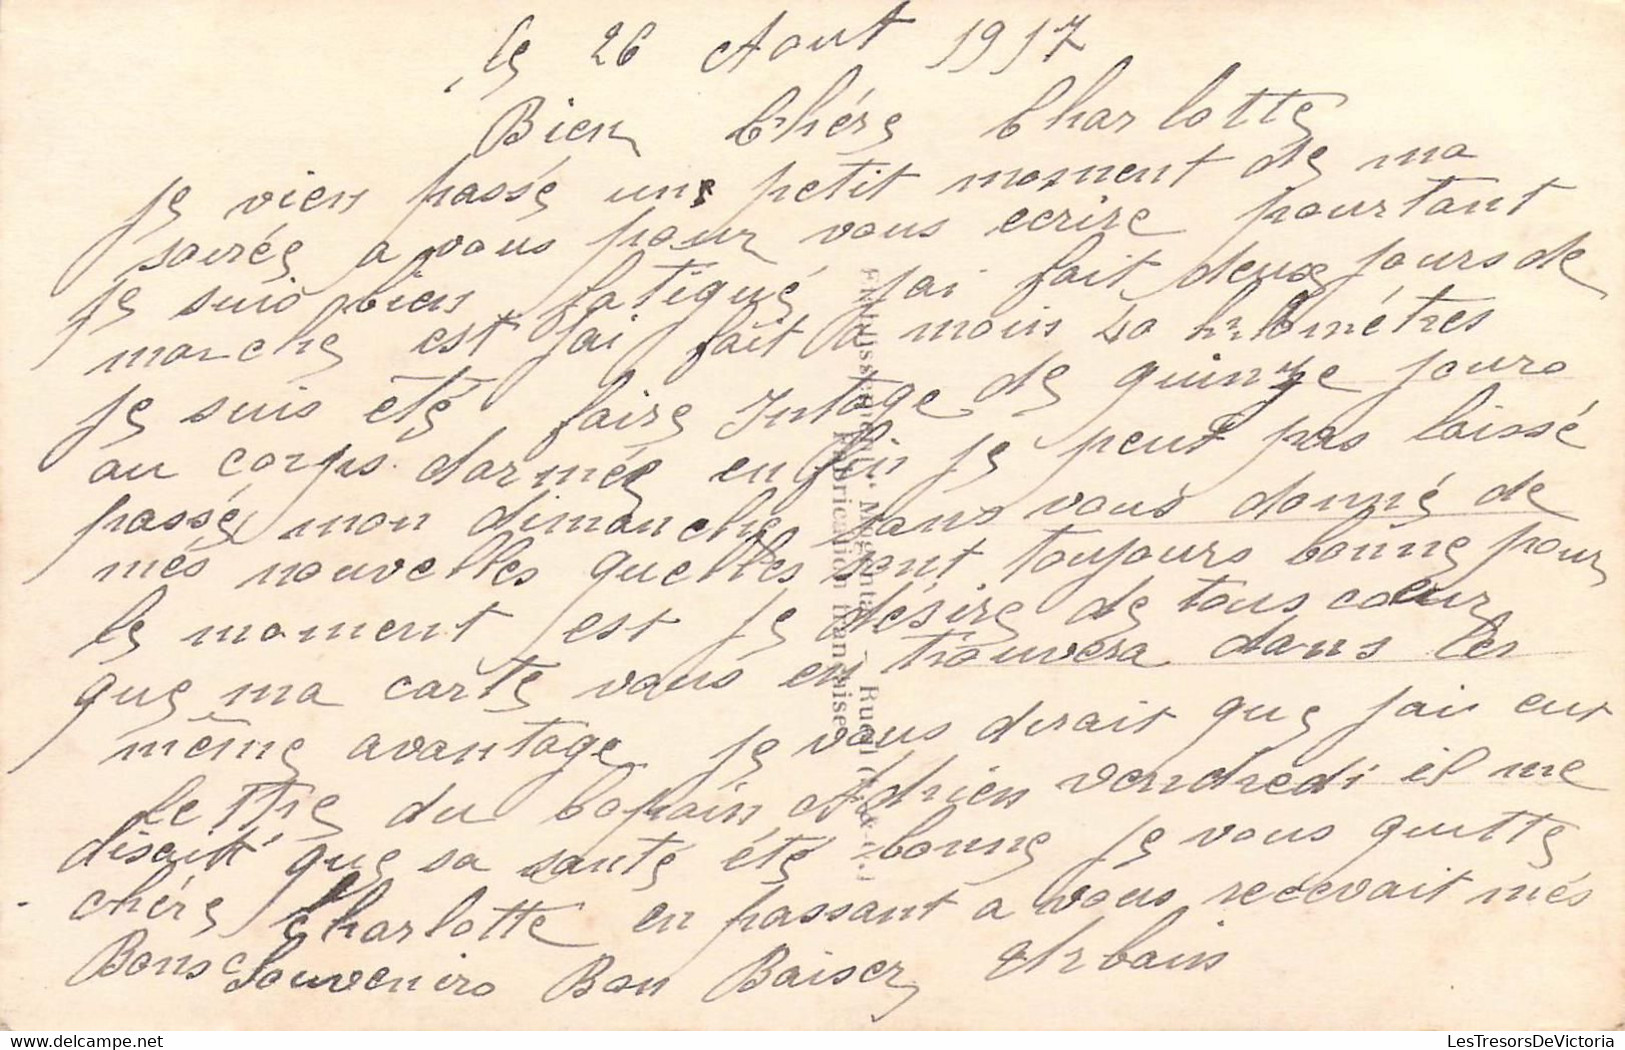 le 26 Aout 1917
Bien Chére Charlotte
Je viens passé une petit moment de ma
soirée a vous pour vous ecrire pourtant
je suis bien fatigué jai fait deux jours de
marche est jai fait a moin 40 kilométres
je suis été faire de quinze jours
au corps darmée enfin je peut pas laissé
passé mon dimanche sans vous donné de
més nouvelles quelles sont toujours bonne pour
le moment est je désire de tous coeur
que ma carte vous en trouvera dans les
même avantage je vous dirait que jai eut
lettre du copain Adrien vendredi il me
disait que sa santé été bonne je vous quitte
chére Charlotte en passant a vous recevait més
Bons Souvenirs Bon Baiser Urbain
Etablissements " Magenta Ruel
Fabrication Française
LesTresorsDeVictoria
delcampe.net